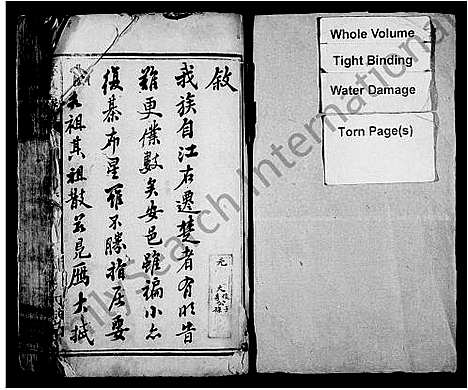 敘
我族自江右遷楚者有明昔
難更僕數矣安邑雖褊小亦
復棊布星羅不勝指屈要
祖其祖散若晨曆大抵
元
Whole Volume
Tight Binding
Water Damage
Torn Page(s)
FamilySearch International